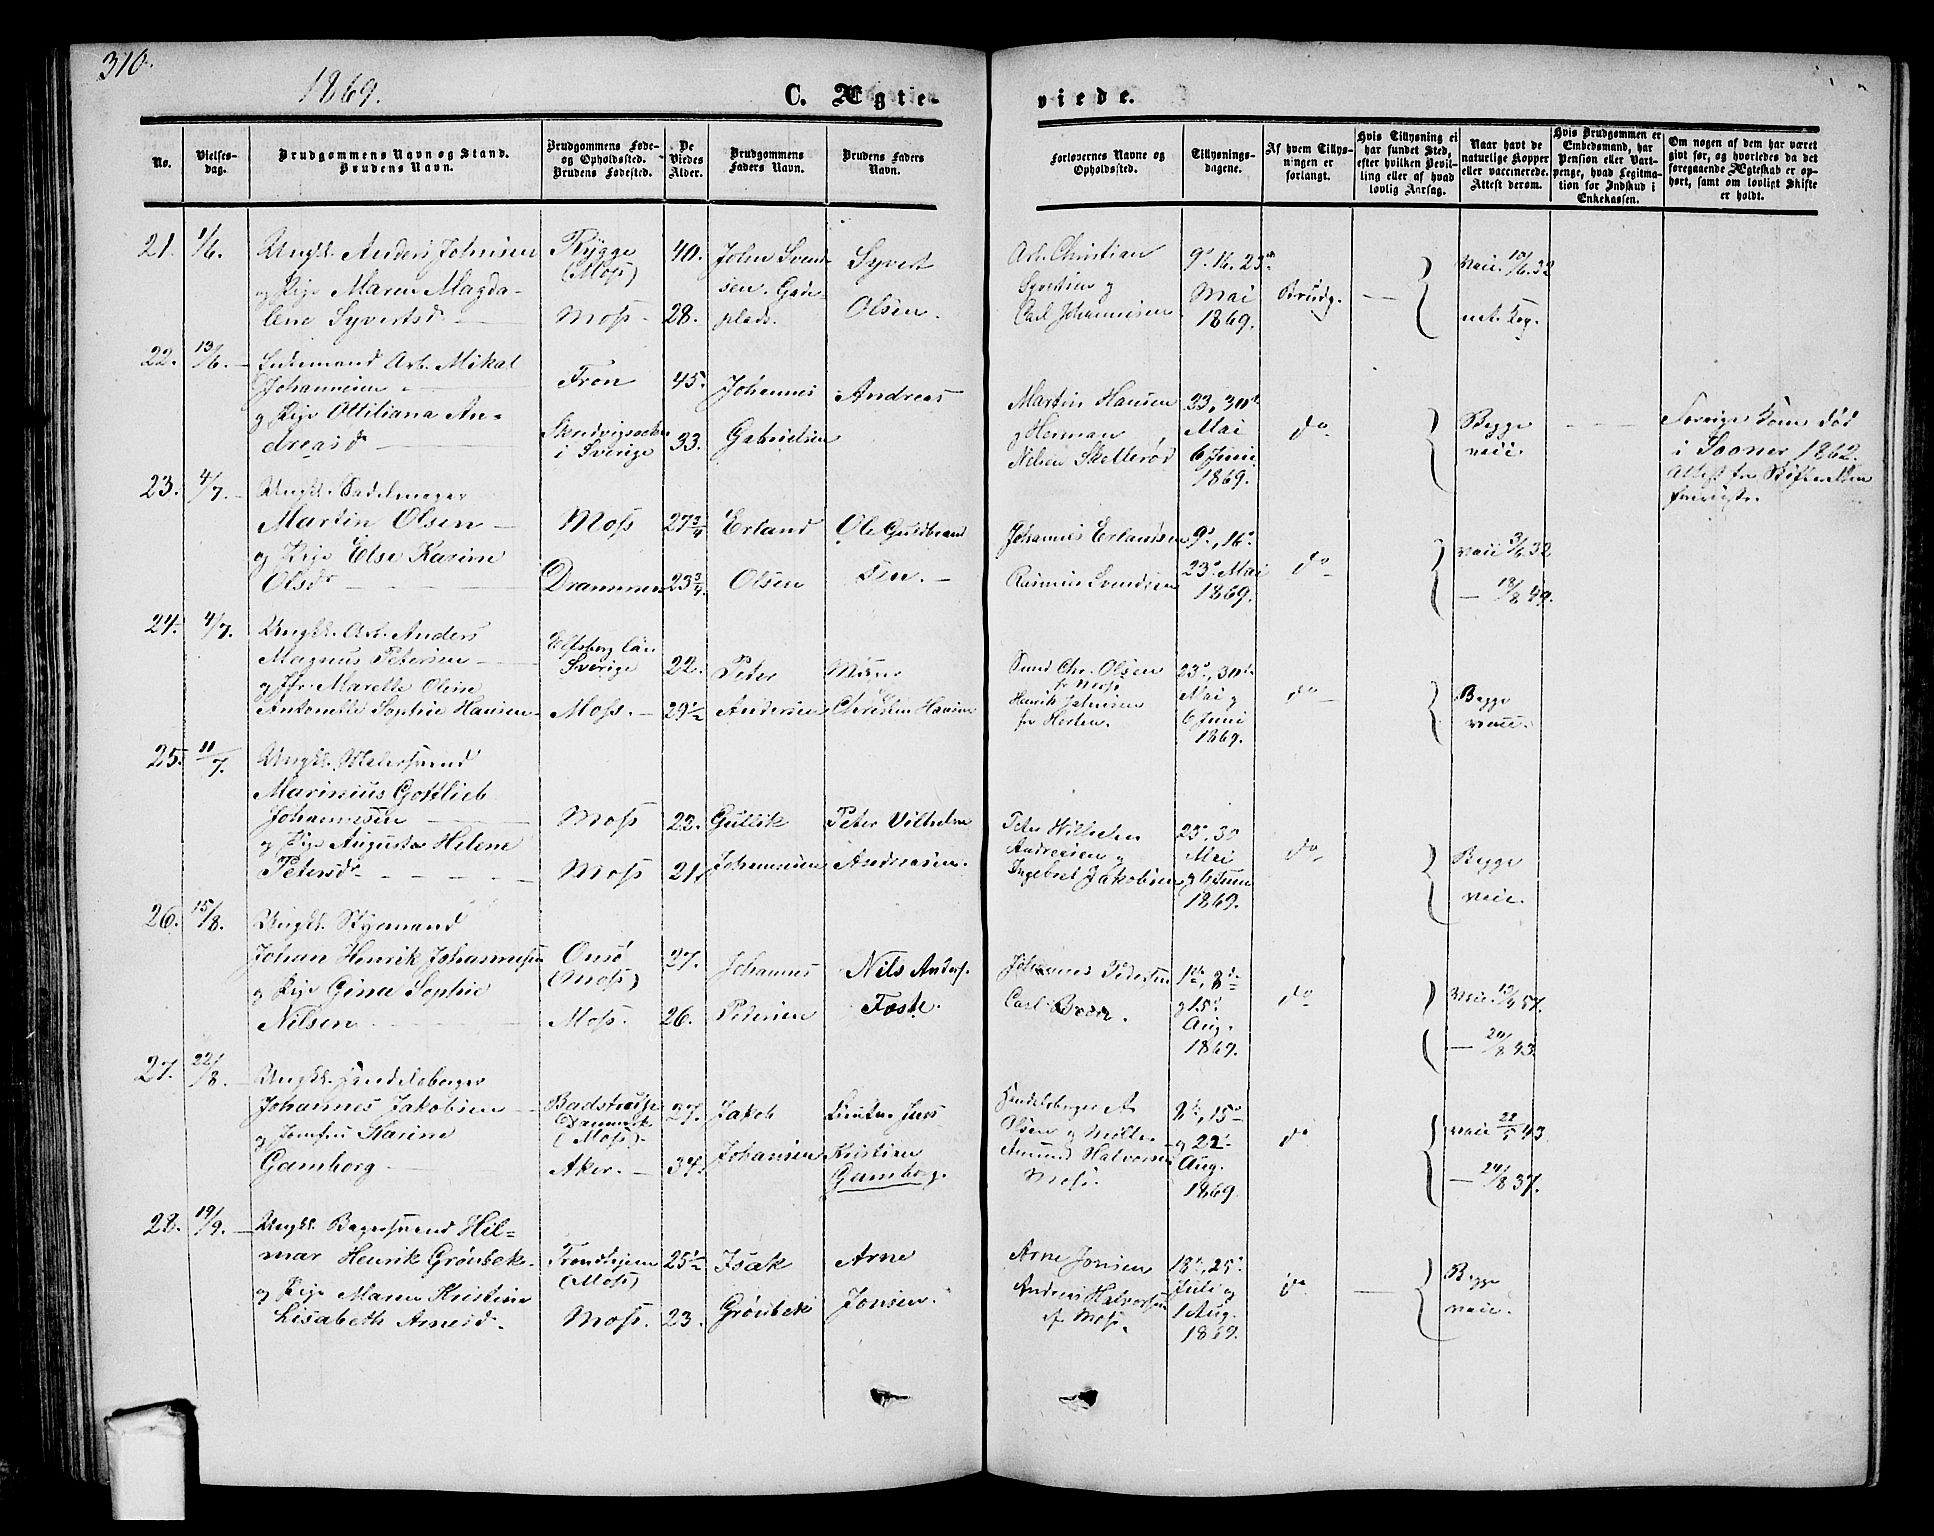 310.
1869.
C. Ægte-
viede.
No.
Vielses-
dag.
Brudgommens Navn og Stand.
Brudens Navn.
Brudgommens Føde-
og Opholdssted.
Brudens Fødested.
De
Viedes
Alder.
Brudgommens
Faders Navn.
Brudens Faders
Navn.
Forlovernes Navne og
Opholdssted.
Tillysnings-
dagene.
Af hvem Tillys-
ningen er
forlangt.
Hvis Tillysning ei
har fundet Sted,
efter hvilken Bevil-
ling eller af hvad
lovlig Aarsag.
Naar havt de
naturlige Kopper
eller vaccinerede.
Attest derom.
Hvis Brudgommen er
Embedsmand, har
Pension eller Vart-
penge, hvad Legitima-
tion for Indskud i
Enkekassen.
Om nogen af dem har været
givt før, og hvorledes da det
foregaaende Ægteskab er op-
hørt, samt om lovligt Skifte
er holdt.
21. 1/6. Ungk. Anders Johnsen
og Pige Maren Magda-
lene Syvertsd
Rygge
(Moss)
Moss
40.
28.
John Svend-
sen.
plads.
Syvert
Olsen.
Arb. Christian
Syvertsen og
Carl Johannesen
9de 16. 23de
Mai
1869.
Brudg.
vacc. 10/6. 32
22. 13/6. Enkemand Arb. Mikal
Johannesen
og Pige Ottiliana An-
dreasd
Fron
i Sverige
45.
33.
Johannes
Gabrielsen
Andreas
Martin Hansen
og Herman
Nielsen Skallerød
23, 30te
Mai
6 Juni
1869.
do
Begge
vacc.
Forrige Kone død
i Sooner 1862.
Attest fr Skifteretten
23. 4/7. Ungk. Sadelmager
Martin Olsen
og Pige Else Karine
Olsd
Moss
Drammen
27 3/4
23 3/4
Erland
Olsen
Ole Guldbrand
sen.
Johannes Erlandsen
Rasmus Svendsen
9de, 16de
23de Mai
1869.
do
vacc 3/6 32
— 18/8 49.
24. 4/7. Ungk. Arb. Anders
Magnus Petersen
og Jfr. Marethe Oline
Antonette Sophie Hansen
Elfsborg Län
Sverige
Moss.
22.
29 1/2
Peter
Andersen
Murer
Christen Hansen
Chr. Olsen
fr Moss
Henrik
fr Horten.
23de, 30te
Mai og
6 Juni
1869.
do
Begge
vacc.
25. 11/7. Ungk. Malersvend
Marinius Gottlieb
Johannesen
og Pige Augusta Helene
Petersd
Moss
Moss
22.
21.
Gullik
Johannesen
Peter Vilhelm
Andreasen.
Peter Wilhelm
Andreasen og
Ingebret Jakobsen
23de, 30
Mai
og 6 Juni
1869.
do
Begge
vacc.
26. 15/8. Ungk. Styrmand
Johan Henrik Johannesen
og Pige Gina Sophie
Nilsen
Onsø
(Moss)
Moss.
27.
26.
Johannes
Petersen
Nils Anders.
Foste.
Johannes Pedersen
Carl Breen.
1ste, 8de
og 15de
Aug.
1869.
do
vacc. 13/9 57.
— 20/8 43.
27. 22/8. Ungk. Handelsborger
Johannes Jakobsen
og Jomfru Karine
Gamborg
Danmark
(Moss).
Aker.
27.
34.
Jakob
Johansen
Jens
Kristian
Gamborg.
Handelsborger A.
Olsen og
Amund Halvorsen
Moss.
8de, 15de
og 22de
Aug.
1869.
do
vacc 22/5 43.
— 24/8 37.
28. 19/9. Ungk. Bagersvend Hil-
mar Henrik Grønbek
og Pige Maren Kristine
Lisabeth Arnesd.
Trondhjem
(Moss)
Moss.
25 1/2
23.
Isak
Grønbek
Arne
Jonsen.
Arne Jonsen
Andreas Halvorsen
af Moss.
18de, 25de
Juli og
1 Aug.
1869.
do
Begge
vacc.